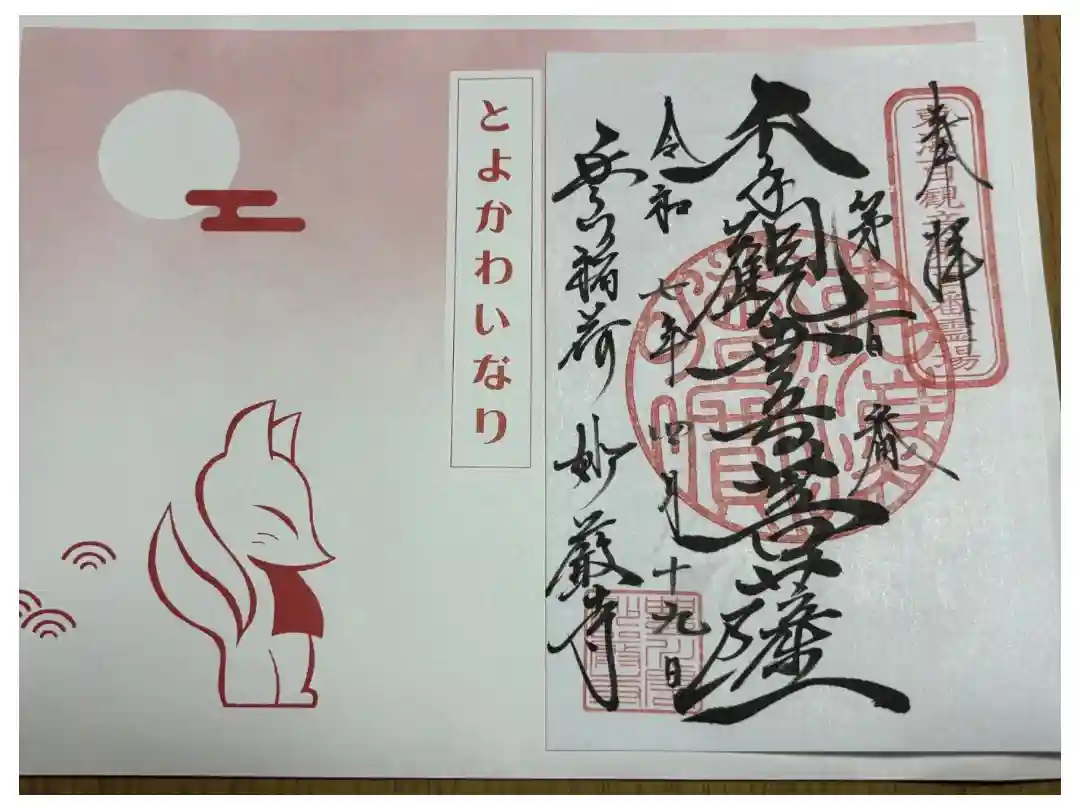 とよかわいなり
奉拝
東海百観音
霊場
第百番
本尊
観世音菩薩
令和七年四月十九日
豊川稲荷 妙厳寺